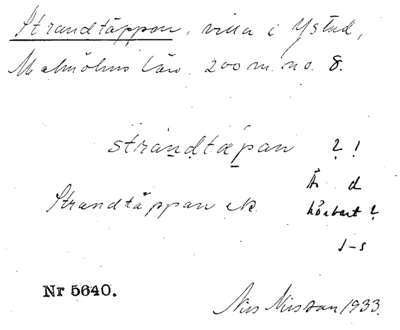 Strandtäppan, villa i Ystad,
Malmöhus län. 200 m. no. 8.
strandtæpan ? !
Är d
Strandtäppan ek. hörbart ?
J-s
Nr 5640.
Nils Nilsson 1933.